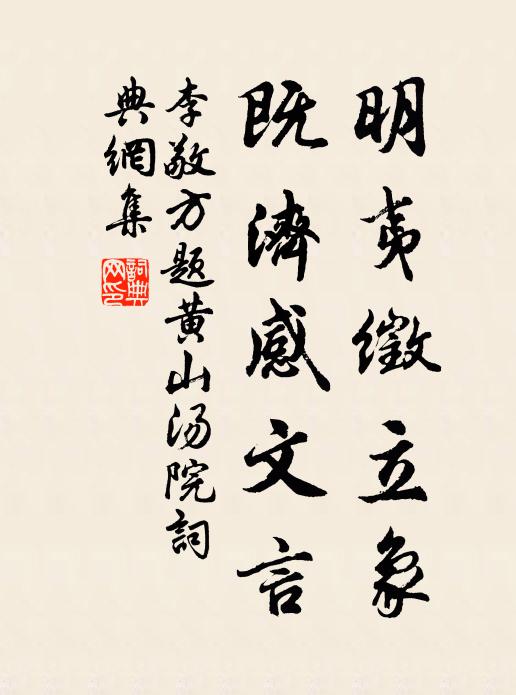 明夷徵立象
既濟感文言
李敬方题黄山汤院詞
典網集
詞典
网印